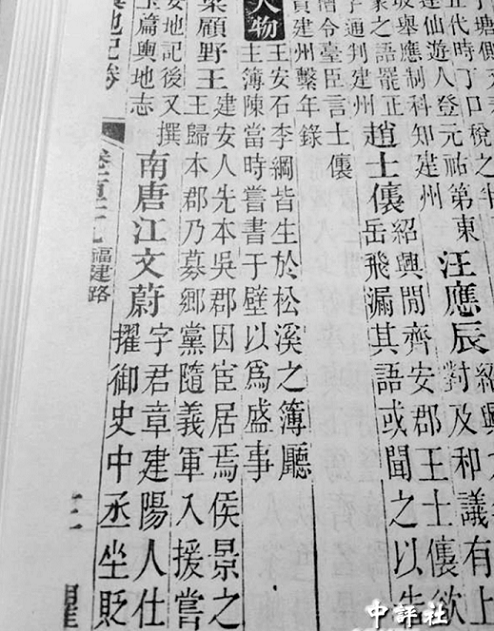 五代時丁口稅之半
汪應辰
對及和議有上
連仙遊人登元祐第東
坡舉應制科知建州
紹興閒齊安郡王士㒟欲
趙士㒟
岳飛漏其語或聞之以告
象之語罷正
字通判建州
僧令臺臣言士㒟
建州繫年錄
人物
王安石李綱皆生於松溪之簿廳
主簿陳當時嘗書于壁以爲盛事
梁顧野王
建安人先本吳郡因宦居焉侯景之
王歸本郡乃募鄉黨隨義軍入援嘗
安地記後又撰
玉篇輿地志
南唐江文蔚
字君章建陽人仕
擢御史中丞坐貶
地記卷
福建路
中評社